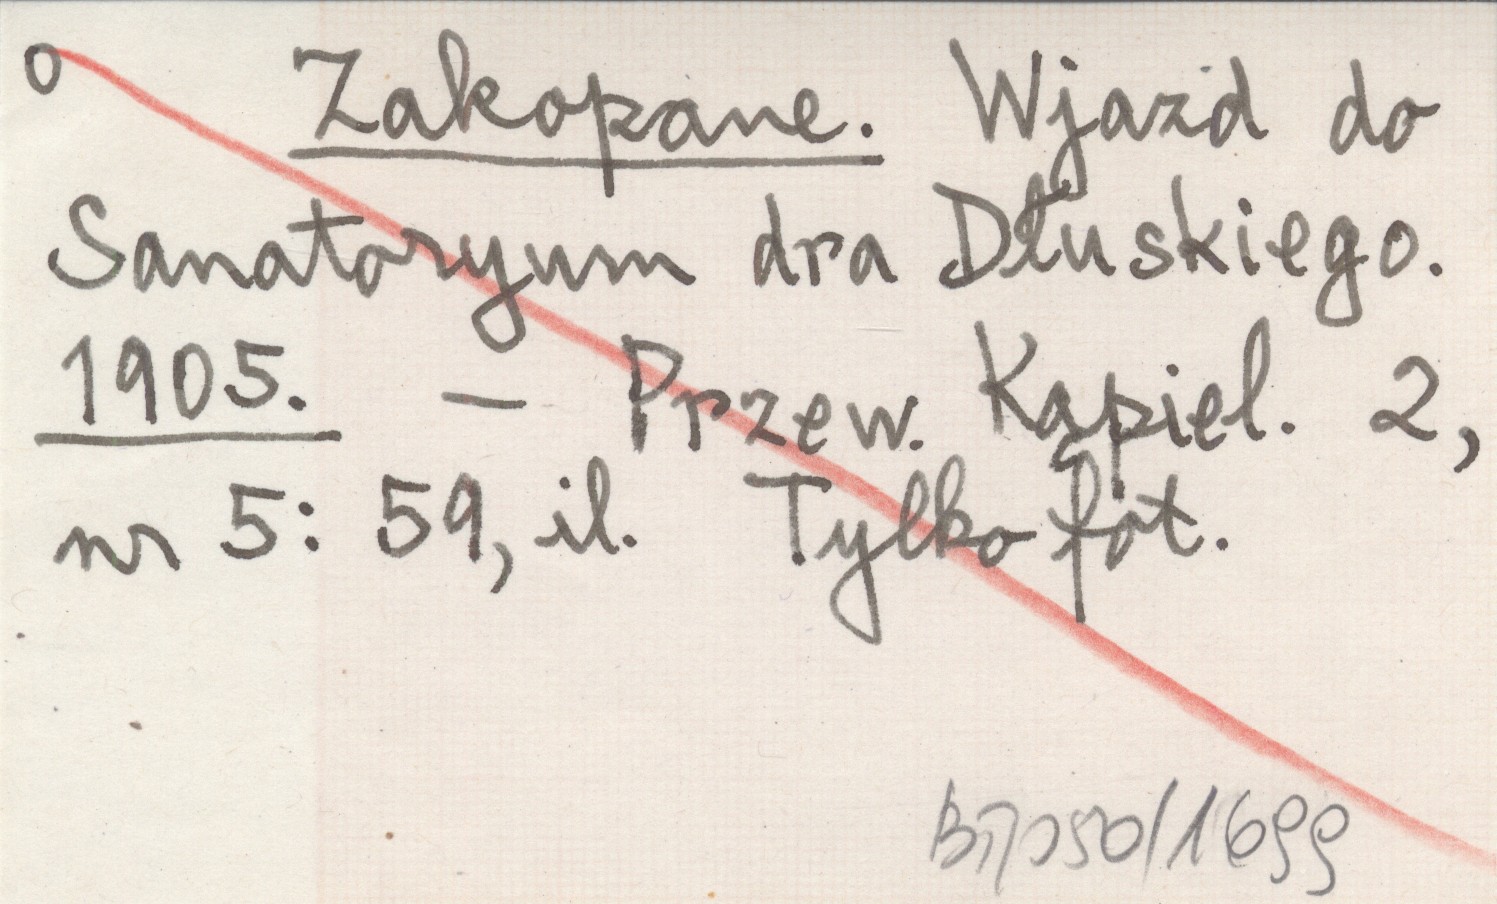 o Zakopane. Wjazd do
Sanatoryum dra Dłuskiego.
1905. — Przew. Kąpiel. 2,
nr 5: 59, il. Tylko fot.